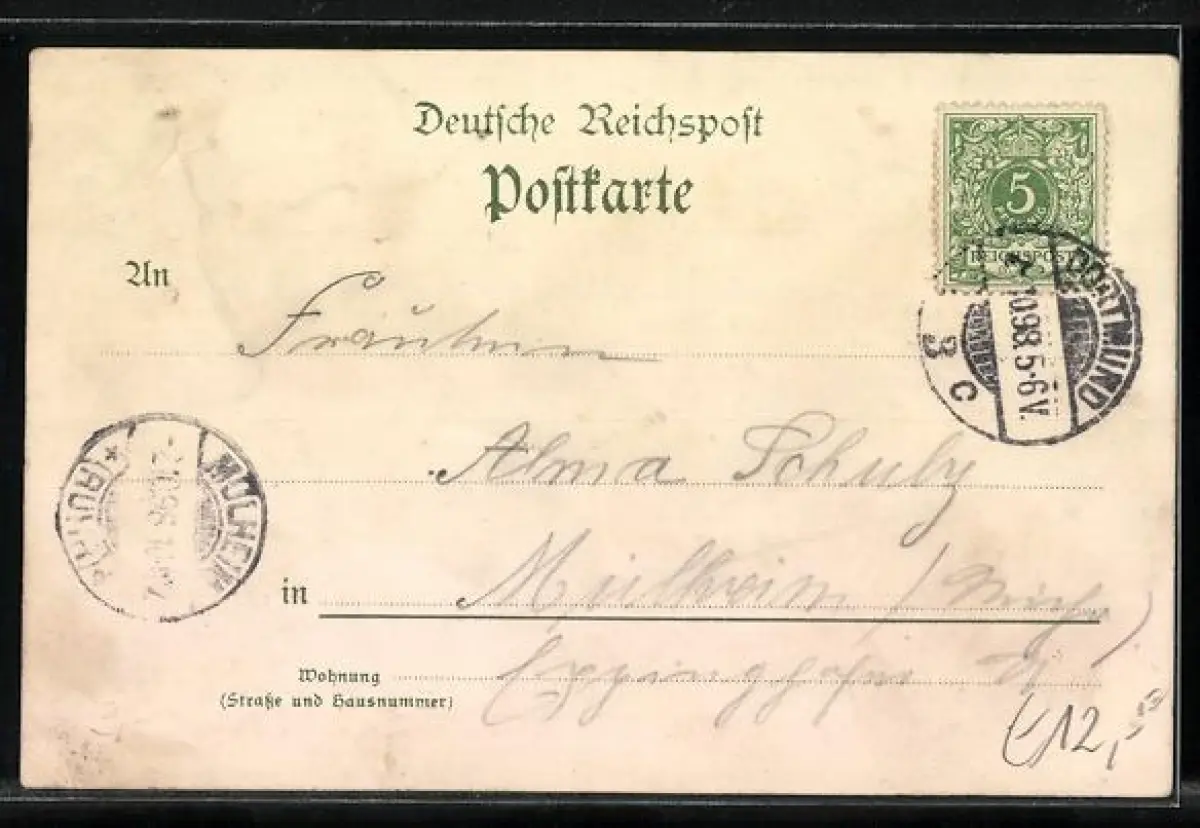 Deutsche Reichspost
Postkarte
5
REICHSPOST
An
Fräulein
DORTMUND
10 98 5-6 V.
3 c
Alma Schulz
MÜLHEIM (RUHR)
in Mülheim / Ruhr
Wohnung Eppinghofer
(Straße und Hausnummer)
12,50